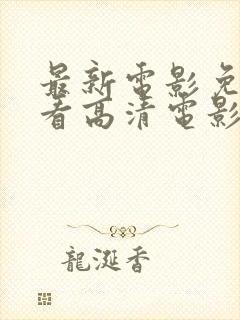 最新電影免
看高清電影
龍涎香